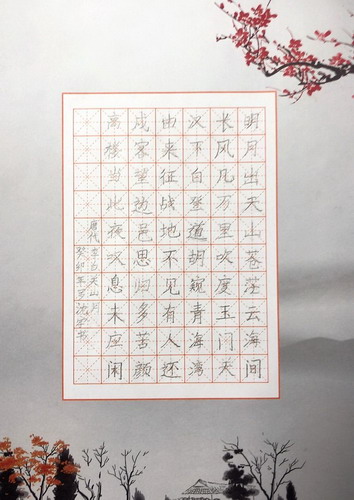 明月出天山苍茫云海间
长风几万里吹度玉门关
汉下白登道胡窥青海湾
由来征战地不见有人还
戍客望边邑思归多苦颜
高楼当此夜叹息未应闲
唐代李白关山月
癸卯年
书